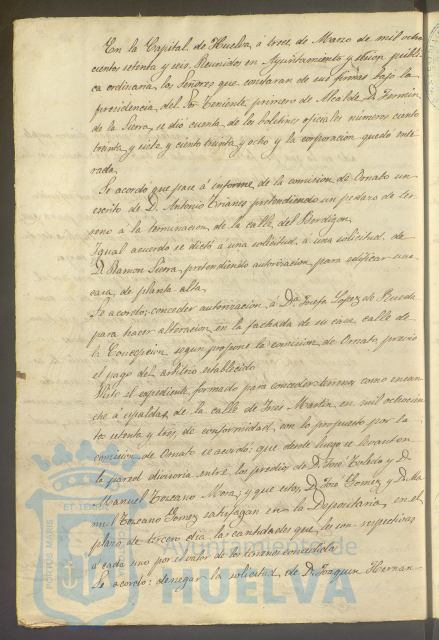 En la Capital de Huelva, á trece de Marzo de mil ocho
cientos setenta y seis, Reunidos en Ayuntamiento y sesion públi
ca ordinaria, los Señores que constaran de sus firmas bajo la
presidencia del Sor. Teniente primero de Alcalde D. Fermin
de la Sierra, se dió cuenta de los boletines oficiales números ciento
treinta y siete y ciento treinta y ocho y la corporacion quedó ente
rada.
Se acordó que pase á informe de la comision de Ornato un
escrito de D. Antonio pretendiendo un pedazo de ter
reno á la terminacion de la calle del Berdigon.
Igual acuerdo se dictó á una solicitud, á una solicitud de
D. Ramon Sierra, pretendiendo autorizacion para edificar una
casa de planta alta.
Se acordó: conceder autorizacion á Da. Josefa Lopez de Rueda
para hacer alteracion en la fachada de su casa calle de
la Concepcion segun propone la comision de Ornato, previo
el pago del arbitrio establecido.
Visto el espediente formado para conceder terrenos como ensan
che á espaldas de la calle de Tres Martin, en mil ochocien
tos setenta y tres, de conformidad, con lo propuesto por la
comision de Ornato se acordó: que desde luego se levanten
la pared divisoria entre los predios de D. José Toledo y D.
Manuel Toscano Mora; y que estos, D. José Gomez y D. Ma
nuel Toscano Gomez satisfagan en la Depositaria, en el
plazo de tercero dia, las cantidades que les son respectivas
á cada uno por el valor de los terrenos concedidos.
Se acordó: denegar la solicitud de D. Joaquin Hernan
Ayuntamiento de
HUELVA
PORTUS MARIS